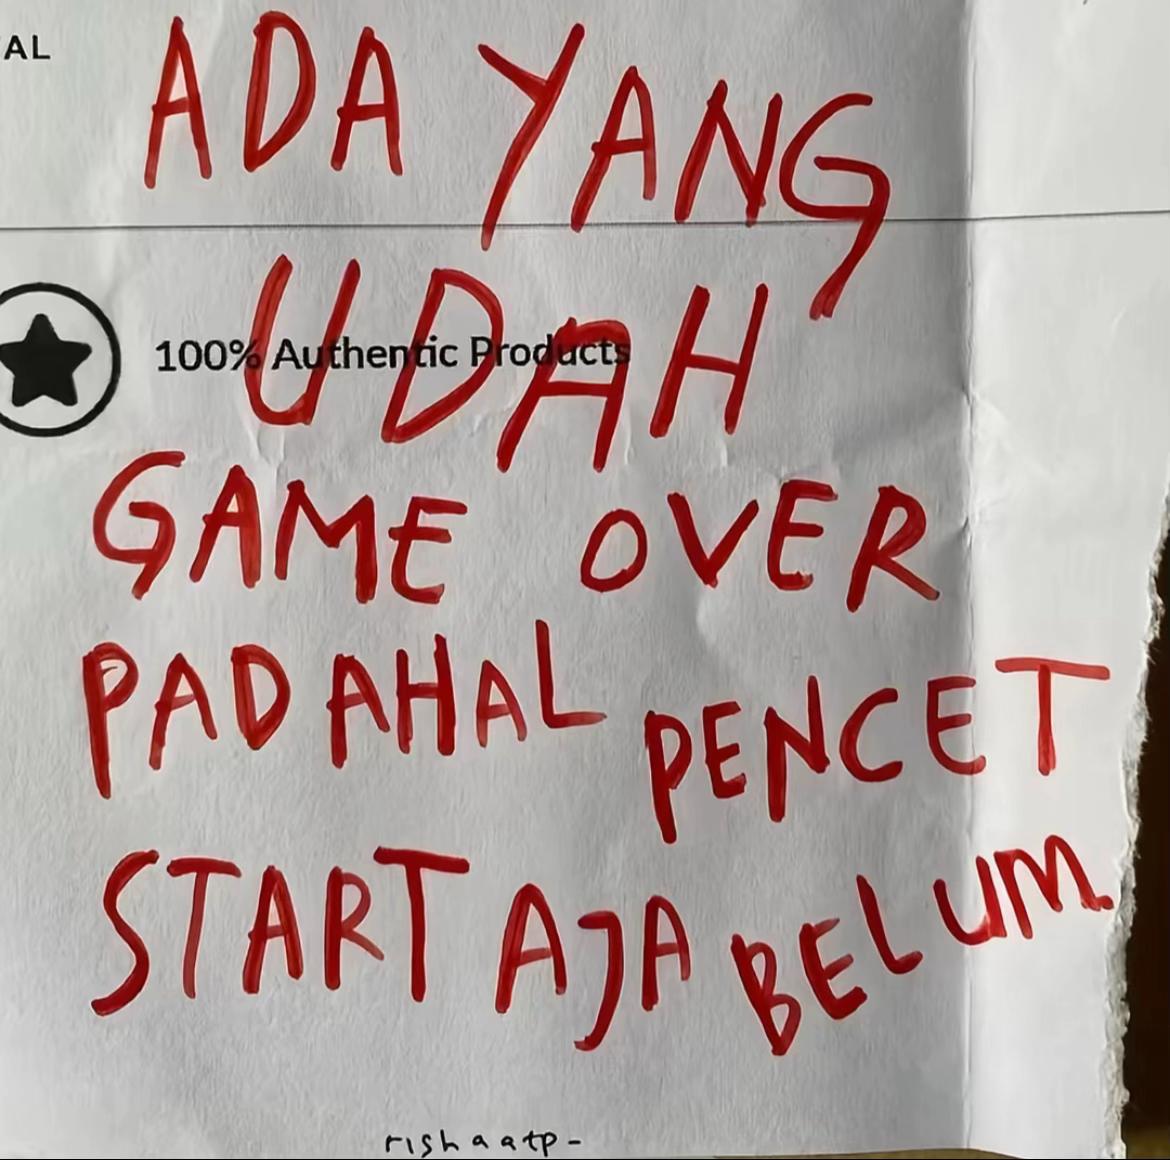 AL
ADA YANG
UDAH
100% Authentic Products
GAME OVER
PADAHAL PENCET
START AJA BELUM
rishaatp-